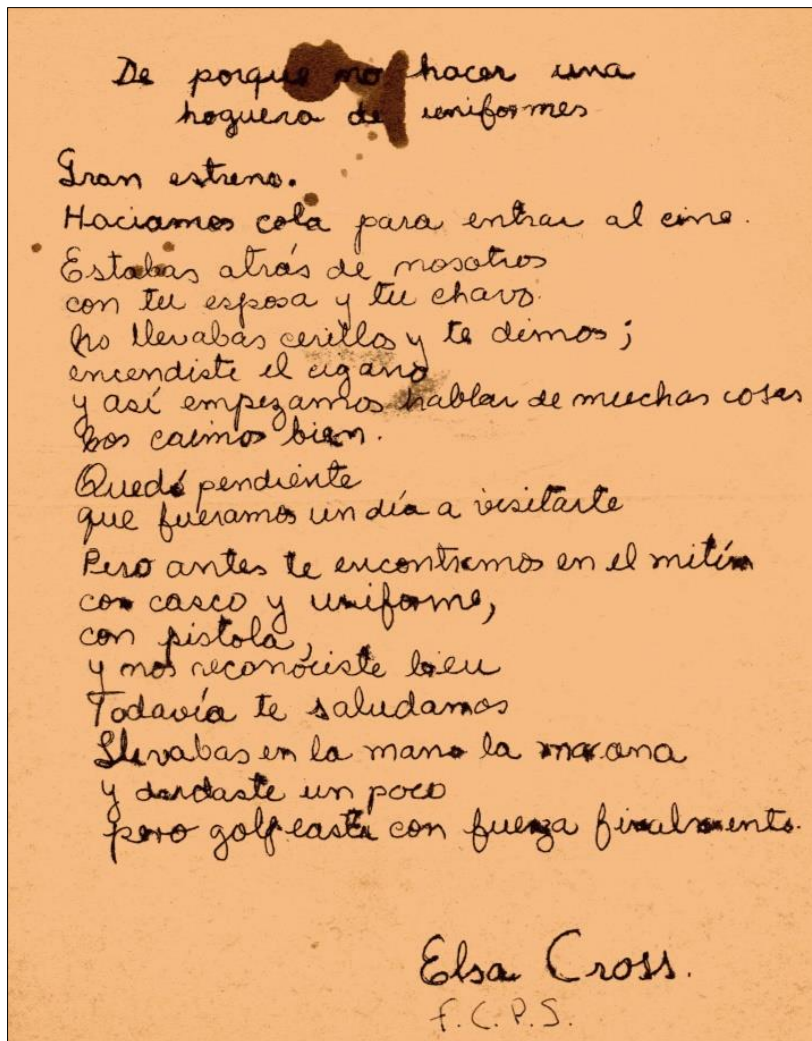 De porque no hacer una
hoguera de uniformes
Gran estreno.
Haciamos cola para entrar al cine.
Estabas atrás de nosotros
con tu esposa y tu chavo.
No llevabas cerillos y te dimos;
encendiste el cigarro
y así empezamos hablar de muchas cosas
Nos caimos bien.
Quedó pendiente
que fueramos un día a visitarte
Pero antes te encontramos en el mitín
con casco y uniforme,
con pistola,
y nos reconociste bien
Todavía te saludamos
Llevabas en la mano la macana
y dudaste un poco
pero golpeaste con fuerza finalmente.
Elsa Cross.
F.C.P.S.